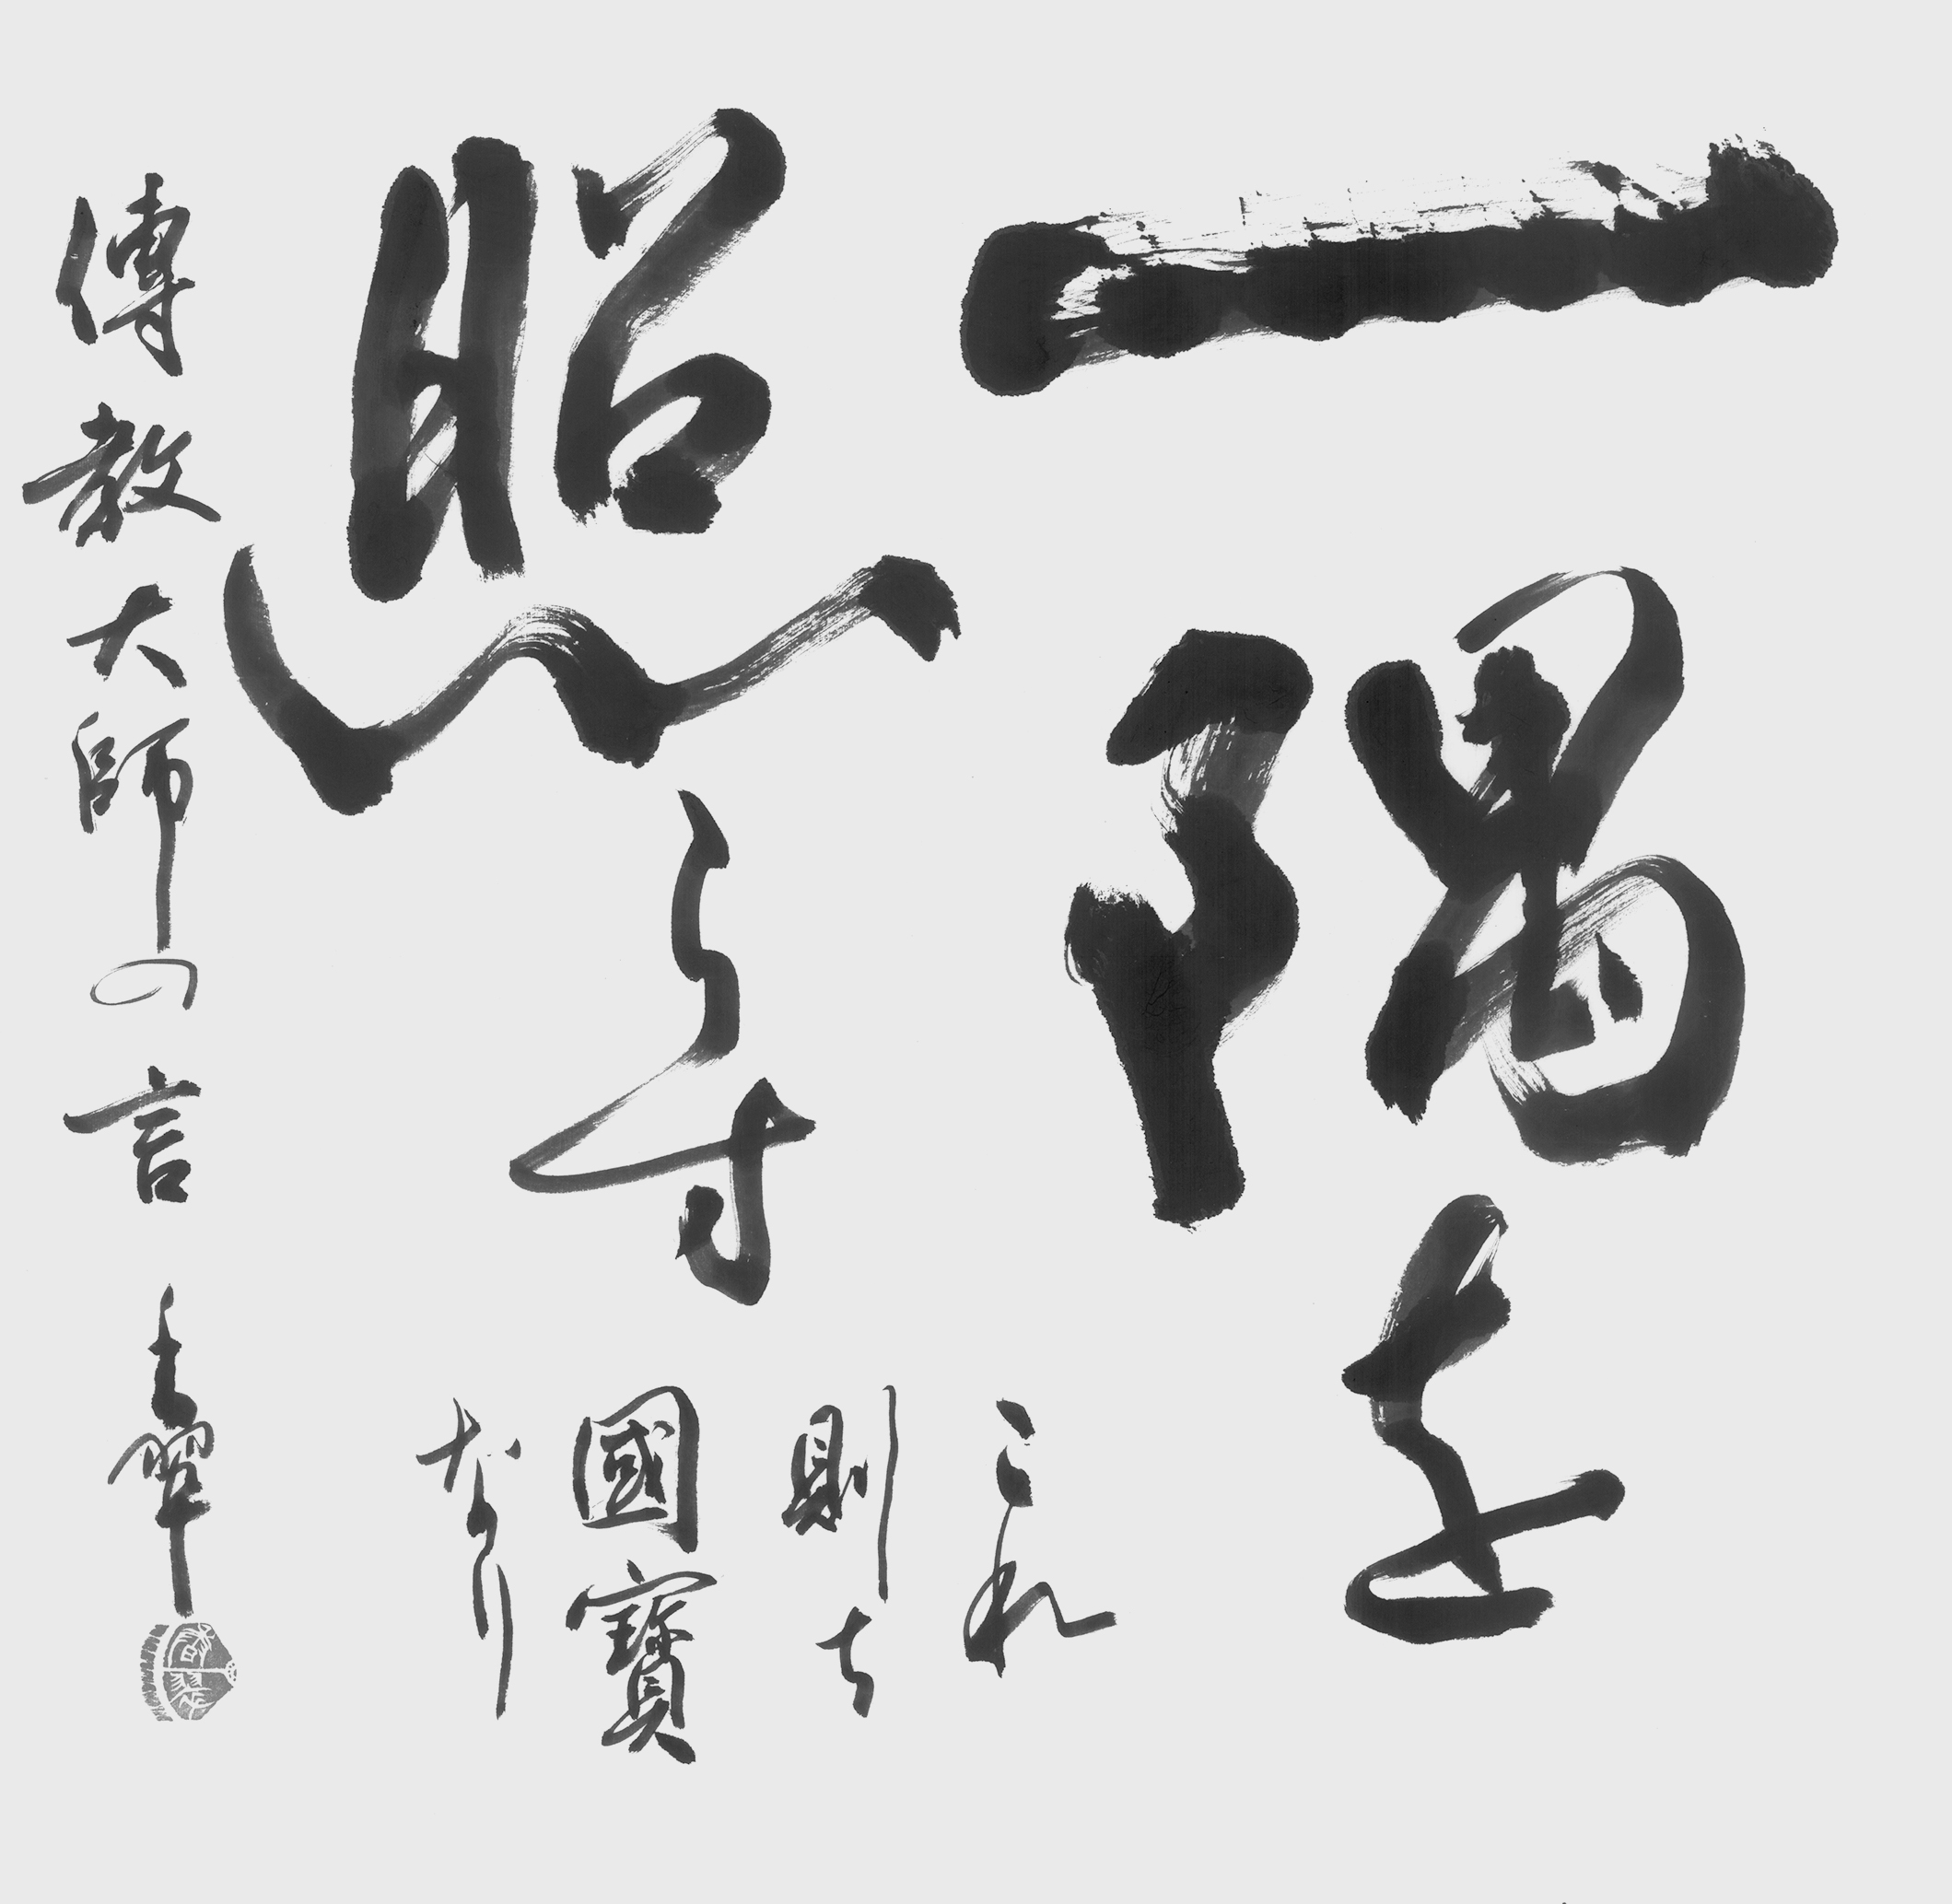 一隅を
照らす
これ
則ち
國寶
なり
傳教大師の言